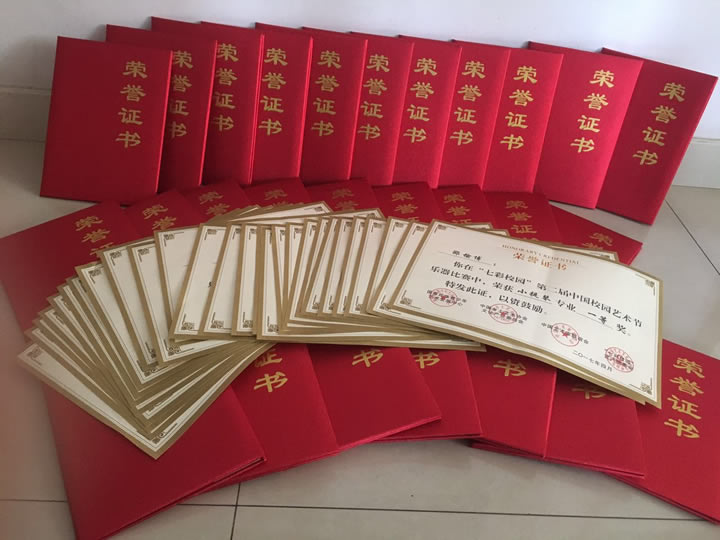 荣誉证书
荣誉证书
荣誉证书
荣誉证书
荣誉证书
荣誉证书
荣誉证书
荣誉证书
荣誉证书
荣誉证书
荣誉证书
荣誉
荣誉
荣
荣
荣
荣
荣
荣誉
HONORARY CREDENTIAL
荣誉证书
你在“七彩校园”第二届中国校园艺术节
乐器比赛中，荣获 小提琴 专业 一等 奖。
特发此证，以资鼓励。
二〇一七年四月
证书
书
书
书
证书
荣誉证书